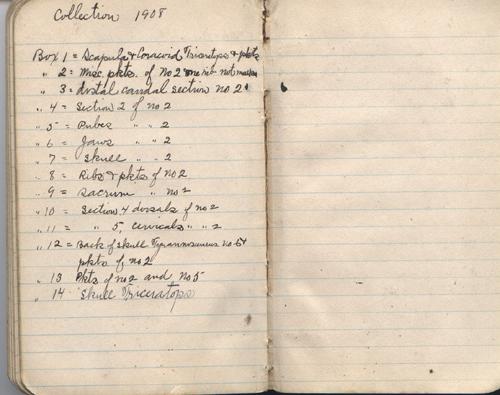 Collection 1908
Box 1 = Scapula & Coracoid Triceratops & pkts
" 2 = Misc. pkts. of No 2 one rib not marked
" 3 = distal caudal section no 2
" 4 = Section 2 of no 2
" 5 = Pubes " " 2
" 6 = Jaws " " 2
" 7 = Skull " " 2
" 8 = Ribs & pkts of No 2
" 9 = Sacrum " No 2
" 10 = Section 4 dorsals of no 2
" 11 = " 5, cervicals " " 2
" 12 = Back of Skull Tyrannosaurus no 54
pkts of no 2
" 13 Pkts of no 2 and No 5
" 14 Skull Triceratops